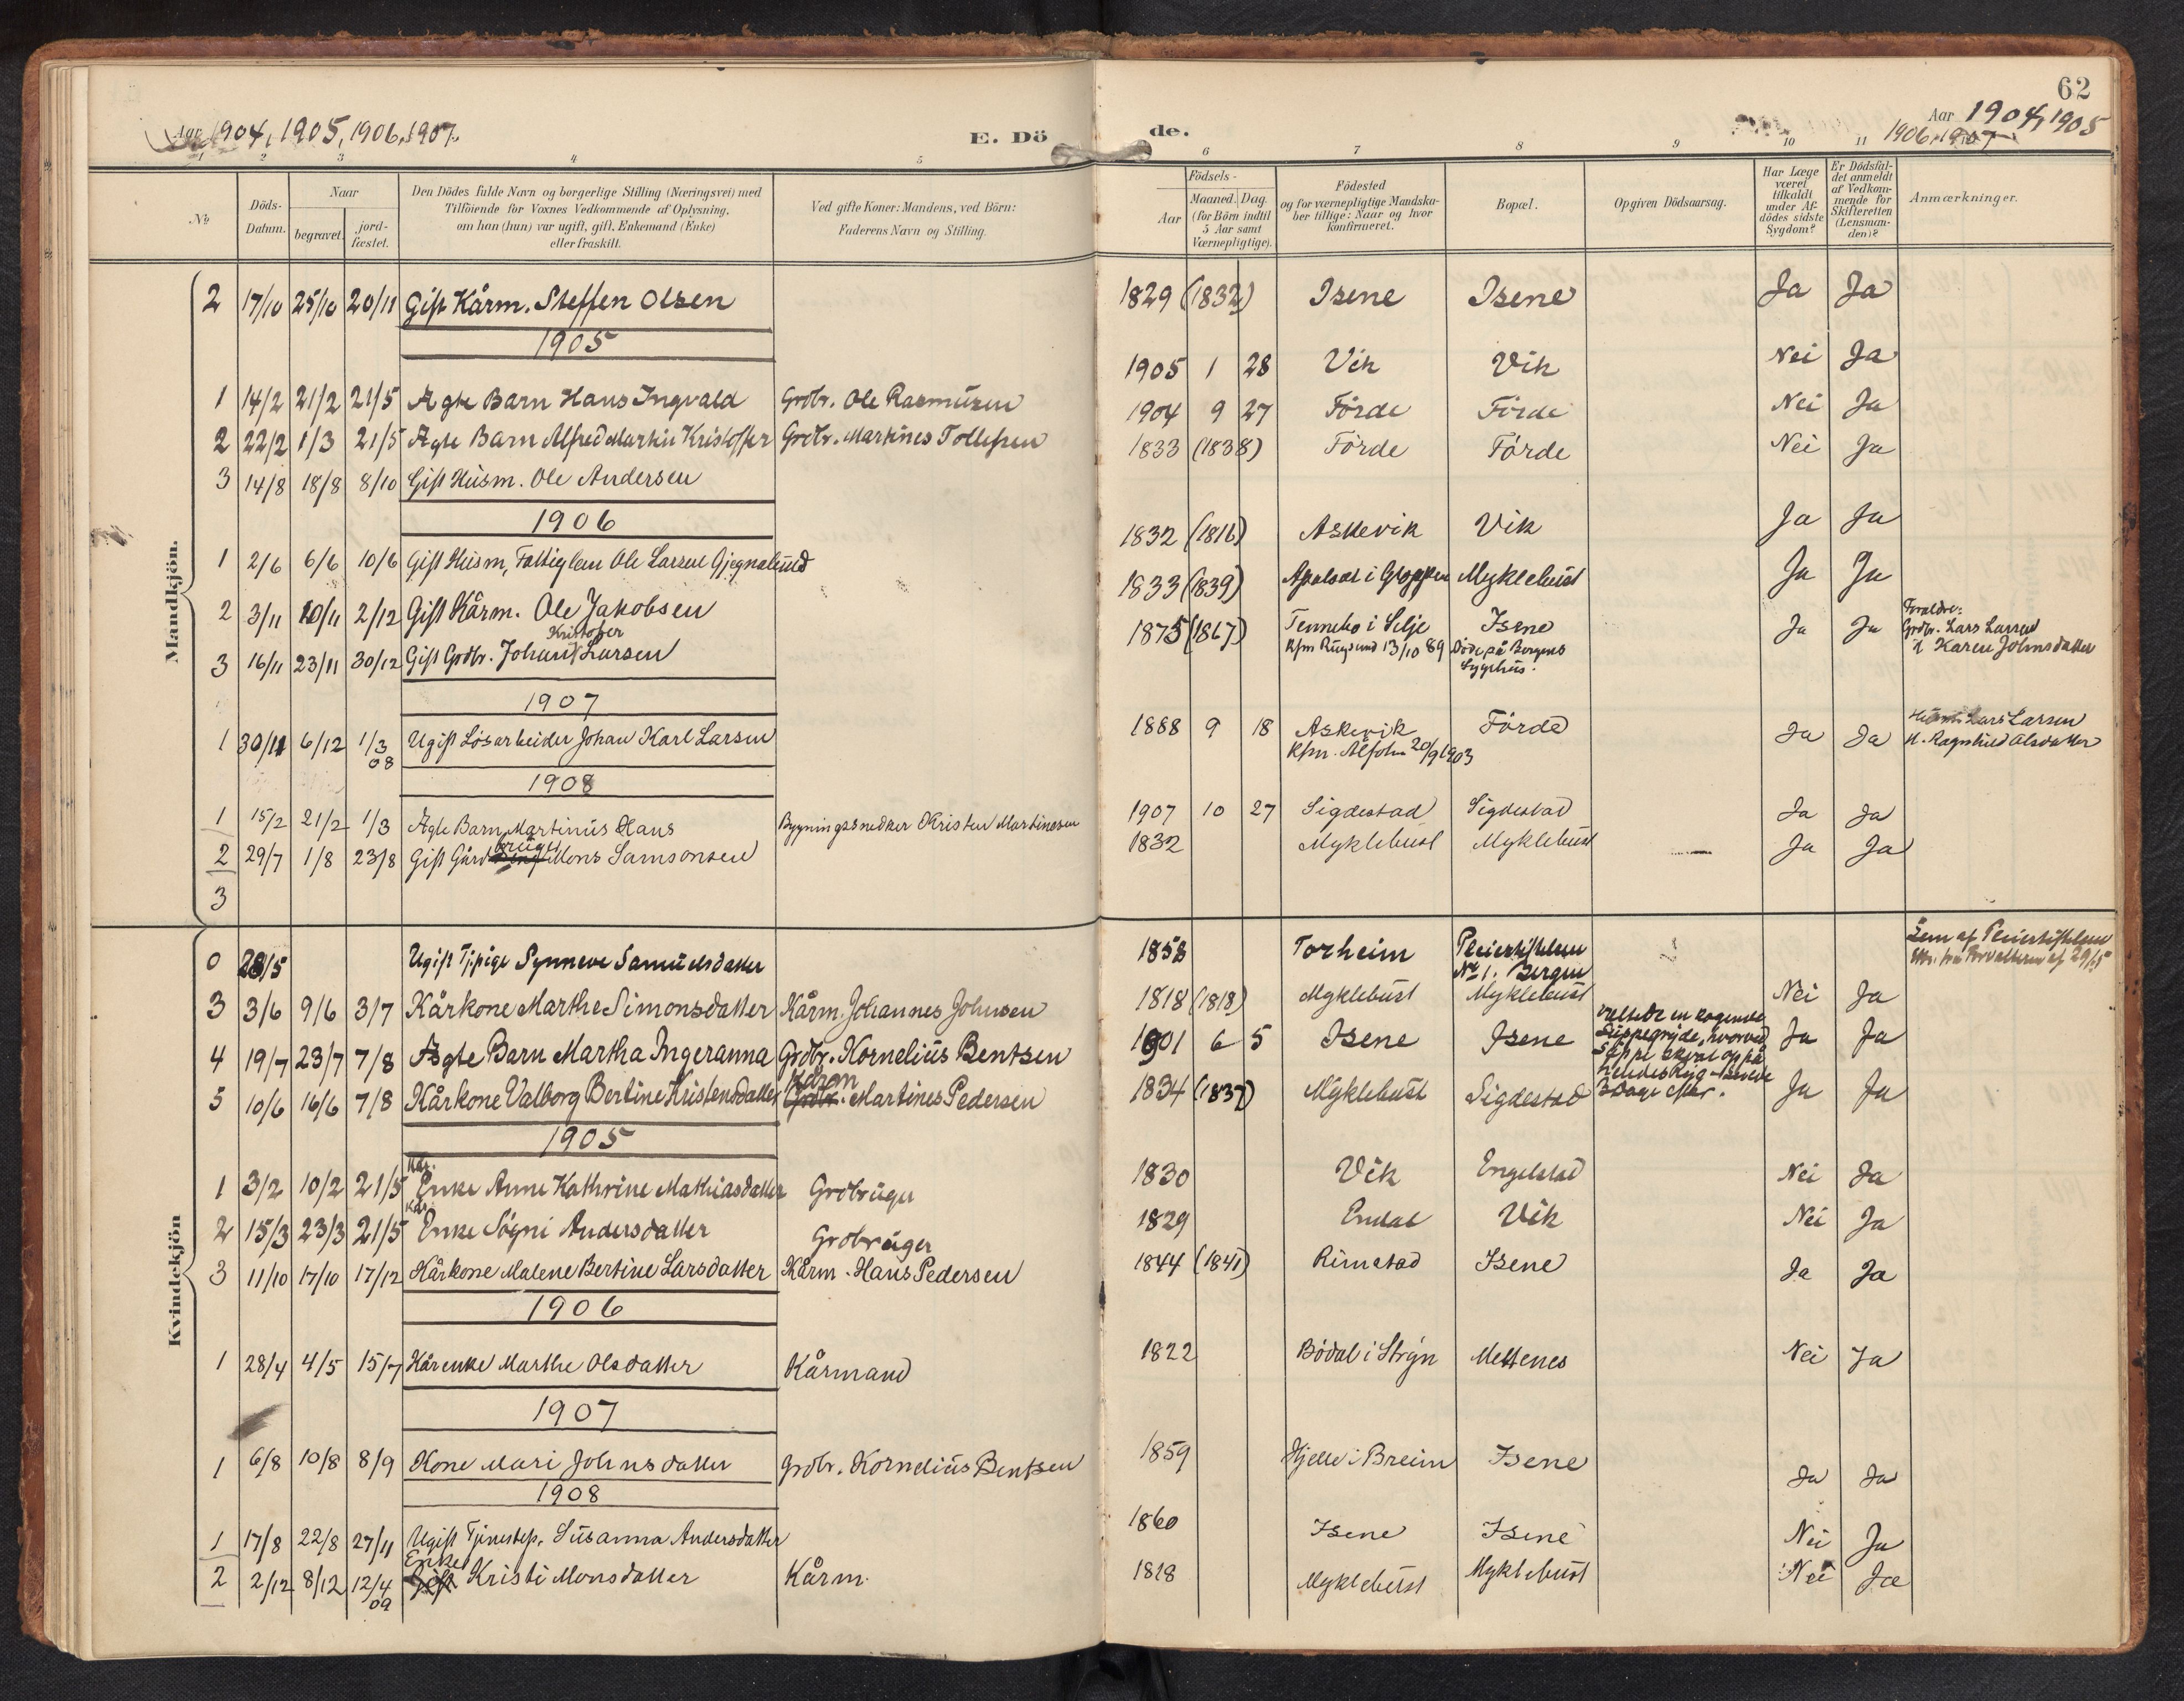 Aar 1904, 1905, 1906, 1907.
E. Dö
1 2 3 4 5
№
Döds-
Datum.
Naar
begravet.
jord-
fæstet.
Den Dödes fulde Navn og borgerlige Stilling (Næringsvei) med
Tilföiende for Voxnes Vedkommende af Oplysning,
om han (hun) var ugift, gift, Enkemand (Enke)
eller fraskilt.
Ved gifte Koner: Mandens, ved Börn:
Faderens Navn og Stilling.
Mandkjön.
2 17/10 25/10 20/11 Gift Kårm. Steffen Olsen
1905
1 14/2 21/2 21/5 Ægte Barn Hans Ingvald Grdbr. Ole Rasmüsen
2 22/2 1/3 21/5 Ægte Barn Alfred Martin Kristoffer Grdbr. Martines Tollefsen
3 14/8 18/8 8/10 Gift Hüsm. Ole Andersen
1906
1 2/6 6/6 10/6 Gift Hüsm, Fattiglem Ole Larsen Gjegnalünd
2 3/11 10/11 2/12 Gift Kårm. Ole Jakobsen
Kristofer
3 16/11 23/11 30/12 Gift Grdbr. Johan Larsen
1907
1 30/11 6/12 1/3 08 Ugift Løsarbeider Johan Karl Larsen
1908
1 15/2 21/2 1/3 Ægte Barn Martinüs Hans Bygningssnedker Kristen Martinesen
brüger
2 29/7 1/8 23/8 Gift Gård Mons Samsonsen
3
Kvindekjön
0 28/5 Ugift Tj.pige Synneve Samüelsdatter
3 3/6 9/6 3/7 Kårkone Marthe Simonsdatter Kårm. Johannes Johnsen
4 19/7 23/7 7/8 Ægte Barn Martha Ingeranna Grdbr. Kornelius Bentsen
Kårm
5 10/6 16/6 7/8 Kårkone Valborg Bertine Kristensdatter Grdbr. Martines Pedersen
1905
Kår.
1 3/2 10/2 21/5 Enke Anne Kathrine Mathiasdatter Grdbrüger
Kår.
2 15/3 23/3 21/5 Enke Søgni Andersdatter Grdbrüger
3 11/10 17/10 17/12 Kårkone Malene Bertine Larsdatter Kårm. Hans Pedersen
1906
1 28/4 4/5 15/7 Kårenke Marthe Olsdatter Kårmand
1907
1 6/8 10/8 8/9 Kone Mari Johnsdatter Grdbr. Kornelius Bentsen
1908
1 17/8 22/8 27/11 Ugift Tjenestep. Süsanna Andersdatter
Enke
2 2/12 8/12 12/4 09 Gift Kristi Monsdatter Kårm.
62
de.
Aar 1904, 1905
1906, 1907
6 7 8 9 10 11
Födsels-
Aar
Maaned. Dag.
(for Börn indtil
5 Aar samt
Værnepligtige).
Födested
og for værnepligtige Mandska-
ber tillige: Naar og hvor
konfirmeret.
Bopæl.
Opgiven Dödsaarsag.
Har Læge
været
tilkaldt
under Af-
dödes sidste
Sygdom?
Er Dödsfal-
det anmeldt
af Vedkom-
mende for
Skifteretten
(Lensman-
den)?
Anmærkninger.
1829 (1832) Isene Isene Ja Ja
1905 1 28 Vik Vik Nei Ja
1904 9 27 Förde Förde Nei Ja
1833 (1838) Förde Förde Nei Ja
1832 (1816) Askevik Vik Ja Ja
1833 (1839) Apalset i Gloppen Myklebüst Ja Ja
1875 (1867) Tennebø i Selje Isene Ja Ja
Kfm Rügsund 13/10 89 Döde på Bergens
Sygehüs.
Forældre:
Grdbr. Lars Larsen
Karen Johnsdatter
1888 9 18 Askevik Förde Ja Ja
Kfm. Ålfoten 20/9 1903
Hüsm. Lars Larsen
Ragnhild Olsdatter
1907 10 27 Sigdestad Sigdestad Ja Ja
1832 Myklebüst Myklebüst — Ja Ja
1858 Torheim Pleiestiftelsen
No 1. Bergen
Lem af Pleiestiftelsen
1818 (1818) Myklebüst Myklebüst Nei Ja
1901 6 5 Isene Isene Ja Ja
væltede en kogende
Süppegryde, hvorved
Süppe skvat op på
hendes Ryg
3 Dage efter.
1834 (1837) Myklebüst Sigdestad Ja Ja
1830 Vik Engelstad Nei Ja
1829 Endal Vik Nei Ja
1844 (1841) Rimstad Isene Ja Ja
1822 Bødal i Stryn Meltenes Nei Ja
1859 Hjelle i Breim Isene Ja Ja
1860 Isene Isene Nei Ja
1818 Myklebüst Myklebüst Nei Ja